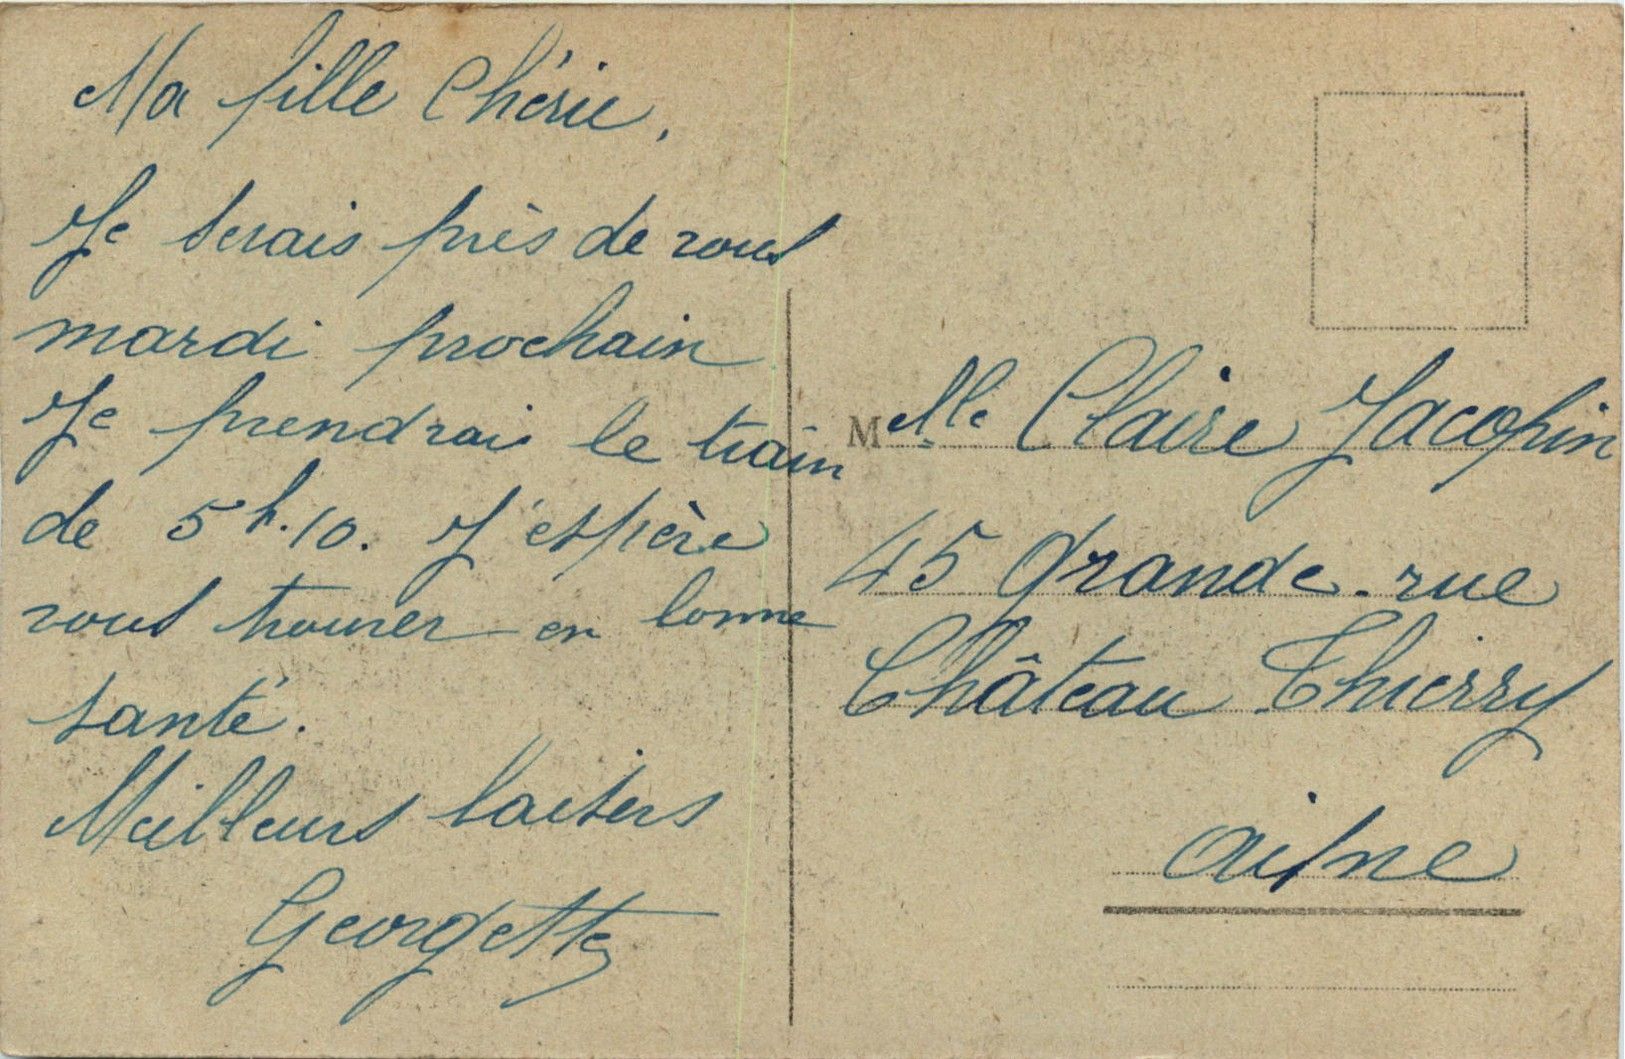 Ma fille Chérie,
Je serais près de vous
mardi prochain
Je prendrais le train
de 5h.10. J'espère
vous trouver en bonne
santé.
Meilleurs baisers
Georgette
Melle Claire Jacopin
45 grande rue
Château Thierry
aisne